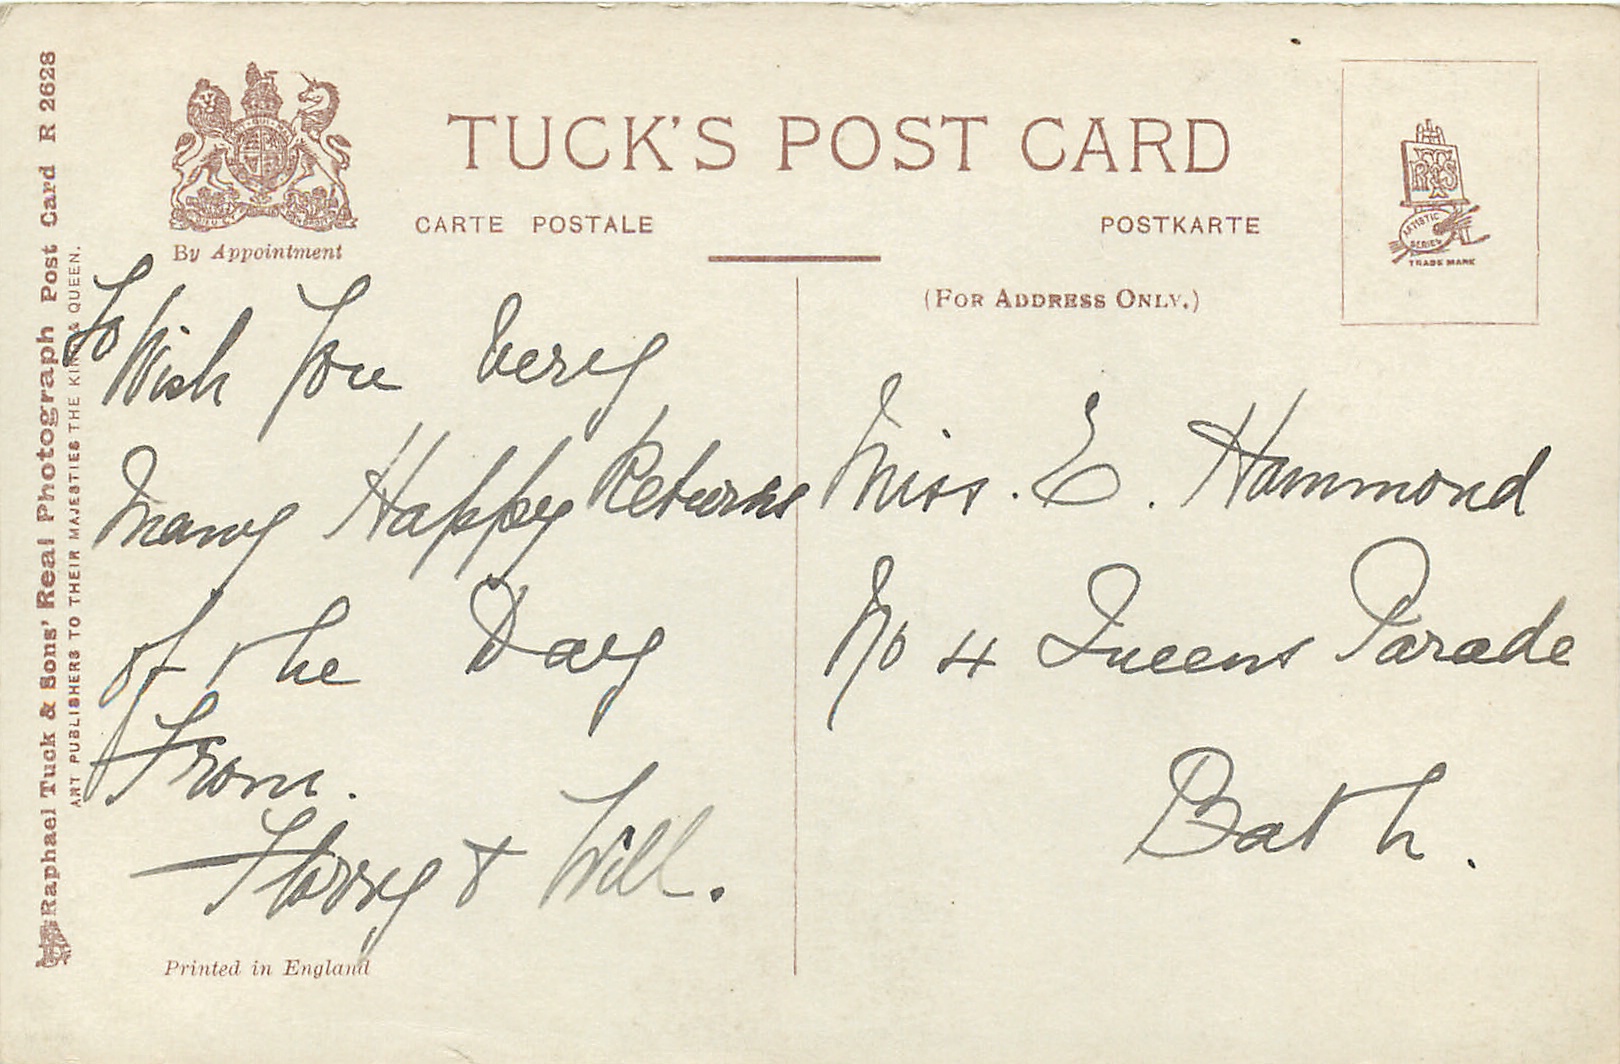 TUCK'S POST CARD
CARTE POSTALE
POSTKARTE
By Appointment
(FOR ADDRESS ONLY.)
RT&S
ARTISTIC
SERIES
TRADE MARK
Raphael Tuck & Sons' Real Photograph Post Card R 2628
ART PUBLISHERS TO THEIR MAJESTIES THE KING & QUEEN.
To Wish You Very
Many Happy Returns
of the Day
From.
Florry & Will.
Miss. E. Hammond
No 4 Queens Parade
Bath.
Printed in England